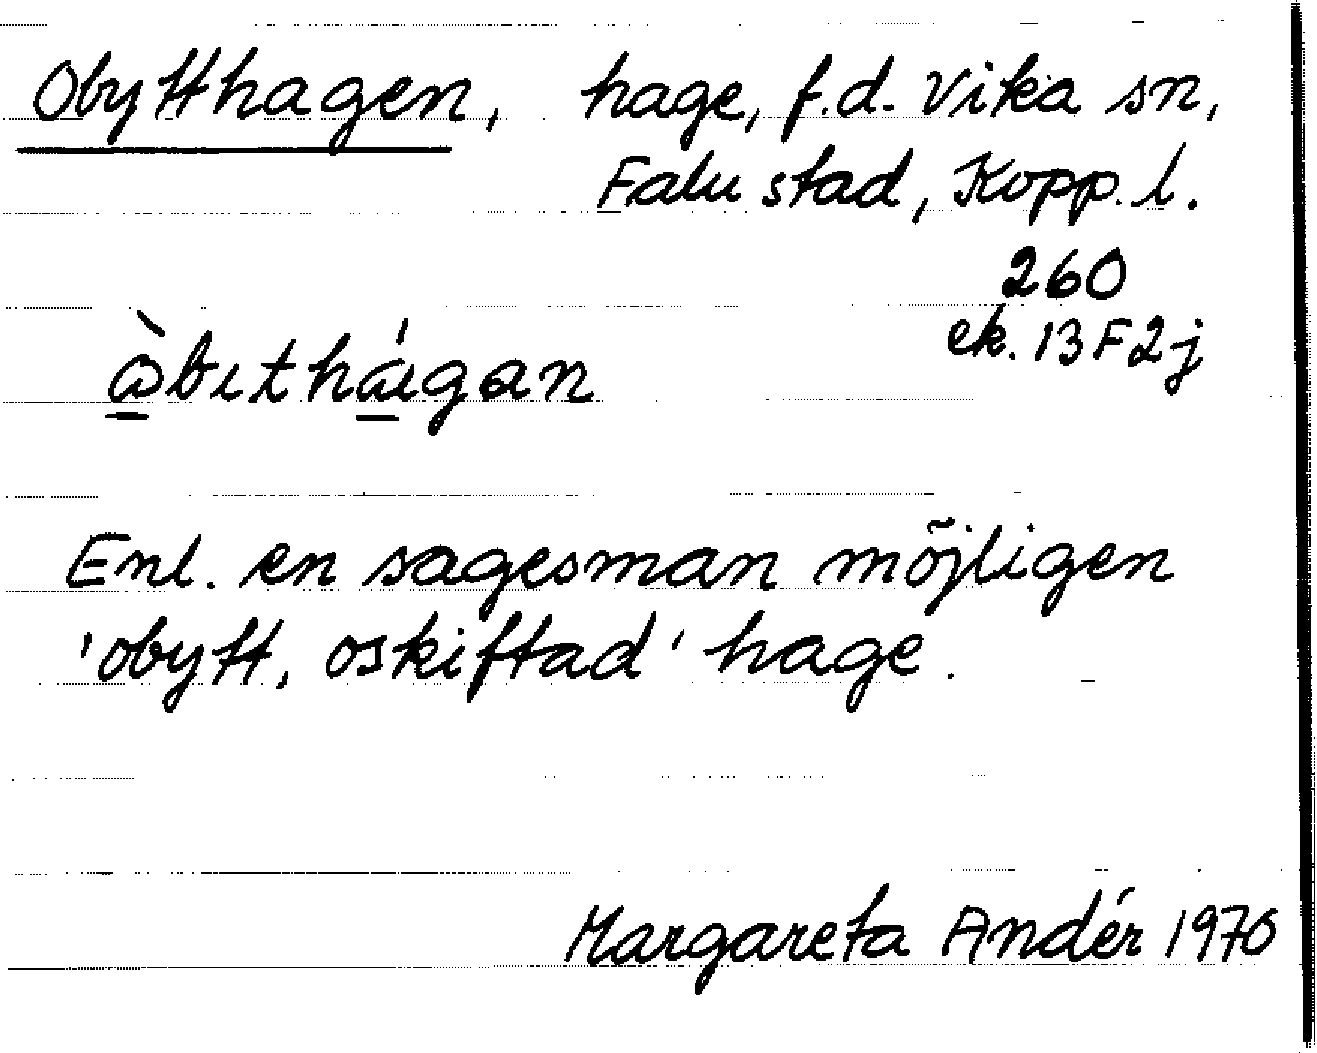 Obytthagen, hage, f.d. Vika sn,
Falu stad, Kopp. l.
260
ek. 13F2j
Enl. en sagesman möjligen
'obytt, oskiftad' hage.
Margareta Andér 1970